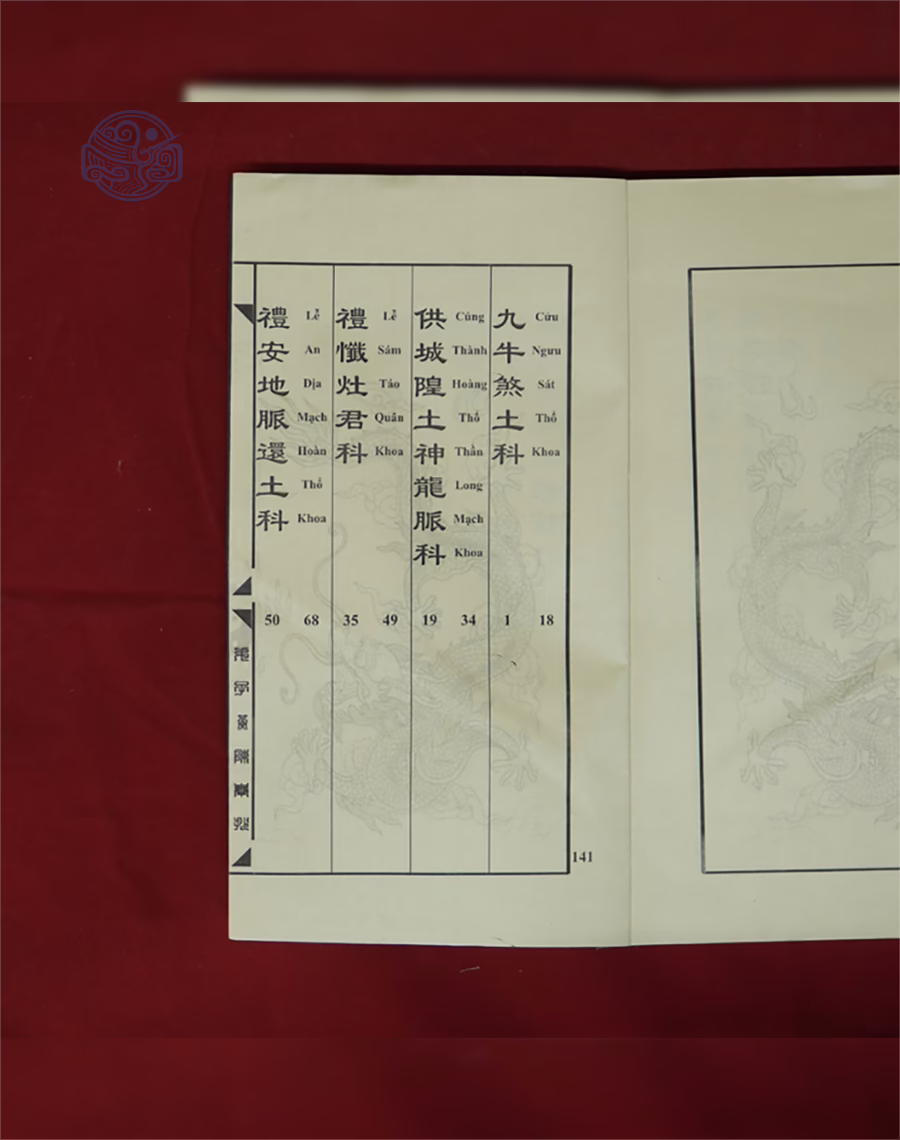 九牛煞土科
Cửu Ngưu Sát Thổ Khoa
1 18
供城隍土神龍脈科
Cúng Thành Hoàng Thổ Thần Long Mạch Khoa
19 34
禮懺灶君科
Lễ Sám Táo Quân Khoa
35 49
禮安地脈還土科
Lễ An Địa Mạch Hoàn Thổ Khoa
50 68
141